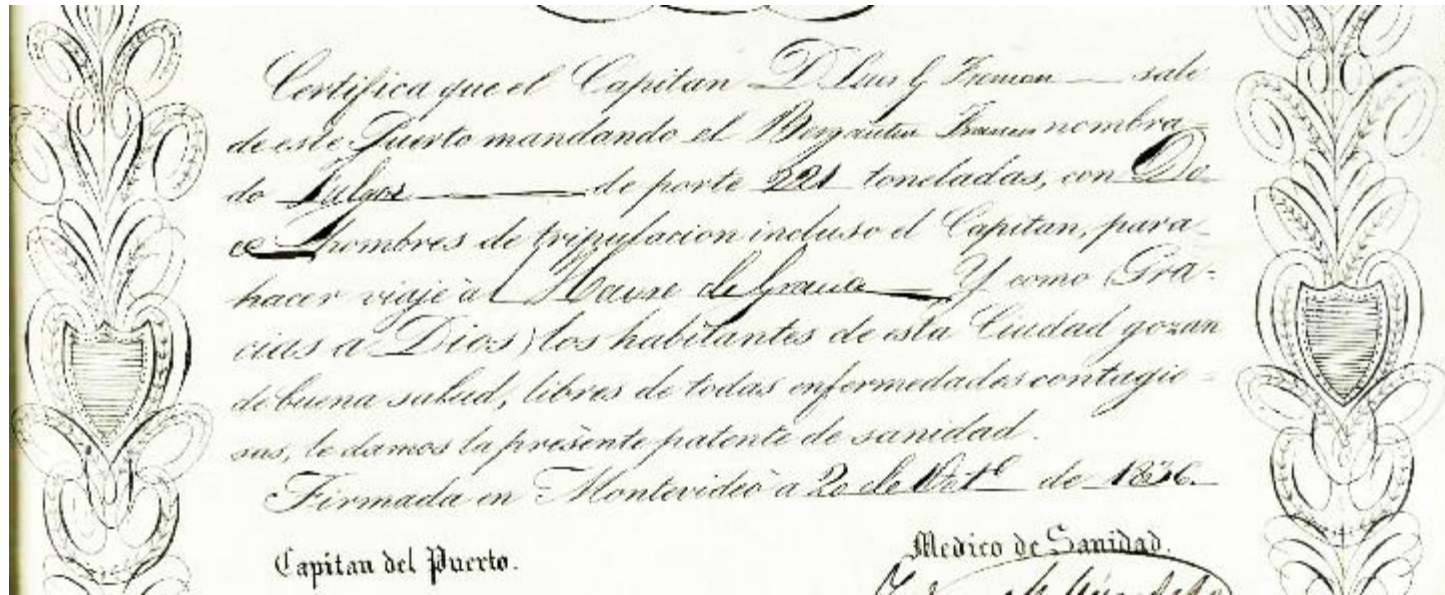 Certifica que el Capitan D. Luis G. — sale
de este Puerto mandando el Bergantin Frances nombra-
do Fulgor — de porte 221 toneladas, con Do-
ce — hombres de tripulacion incluso el Capitan, para
hacer viaje àl Havre de Gracia — Y como (Gra-
cias a Dios) los habitantes de esta Ciudad gozan
de buena salud, libres de todas enfermedades contagio-
sas, le damos la presente patente de sanidad.
Firmada en Montevideò a 20 de Oct.e de 1836.
Capitan del Puerto.
Medico de Sanidad.